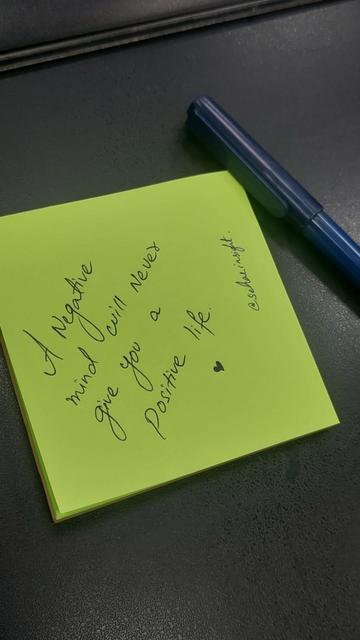 A Negative
mind will Never
give you a
Positive life.